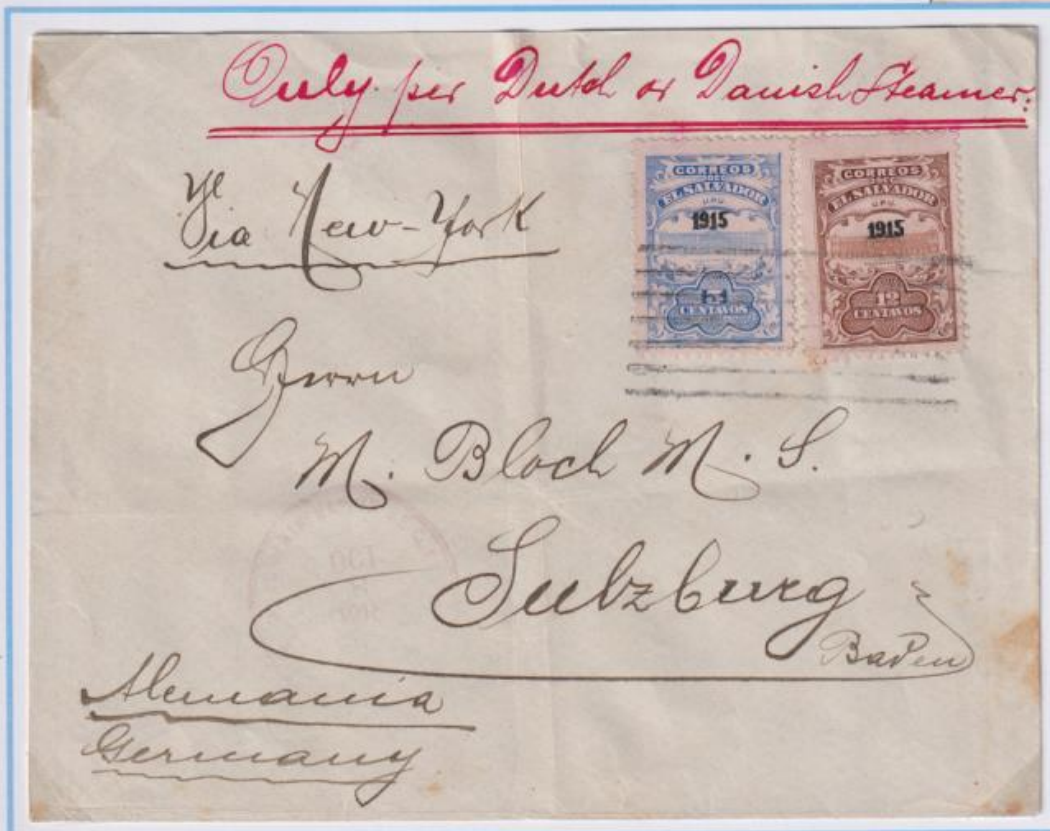 Only per Dutch or Danish Steamer.
Via New-York
CORREOS
DE
EL SALVADOR
UPU
1915
5
CENTAVOS
CORREOS
DE
EL SALVADOR
UPU
1915
12
CENTAVOS
Herrn
M. Bloch M. S.
Sulzburg
Baden
Alemania
Germany